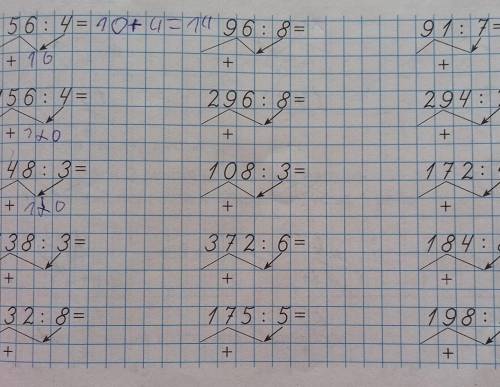 56 : 4 = 10 + 4 = 14 96 : 8 = 91 : 7 =
+ 16 + +
156 : 4 = 296 : 8 = 294 :
+ + +
48 : 3 = 108 : 3 = 172 :
+ + +
38 : 3 = 372 : 6 = 184 :
+ + +
32 : 8 = 175 : 5 = 198 :
+ + +